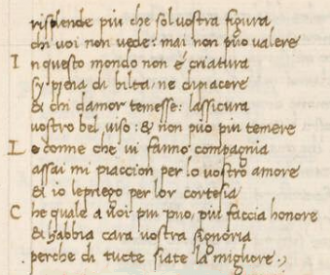 risplende piu che sol vostra figura
chi voi non vede: mai non puo valere
I n questo mondo non e criatura
sy piena di bilta / ne di piacere
& chi damor temesse: lassicura
vostro bel viso: & non puo piu temere
L e donne che vi fanno compagnia
assai mi piaccion per lo vostro amore
& io le priego per lor cortesia
C he quale a voi piu puo, piu faccia honore
& habbia cara vostra signoria
perche di tucte siate la migliore.